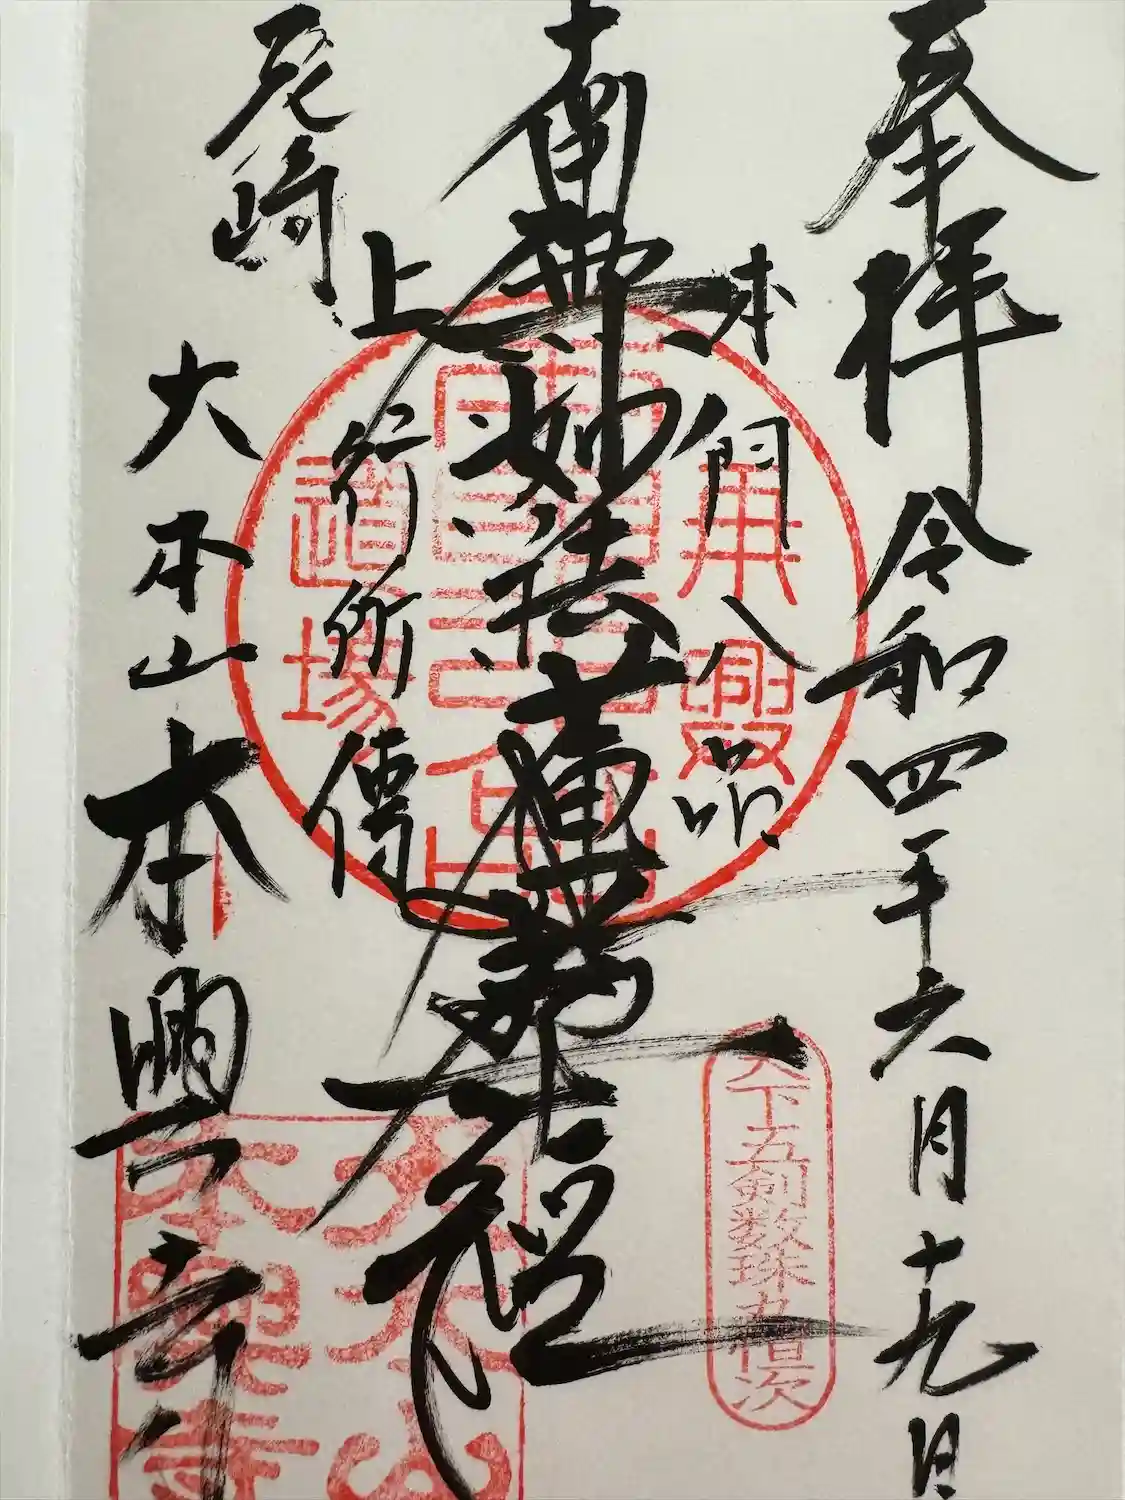 奉拝
令和四年六月十九日
本門八品
南無妙法蓮華経
上行所傳
尼崎
大本山
本興寺
再興
道場
天下五剣数珠丸恒次
大本山
本興寺